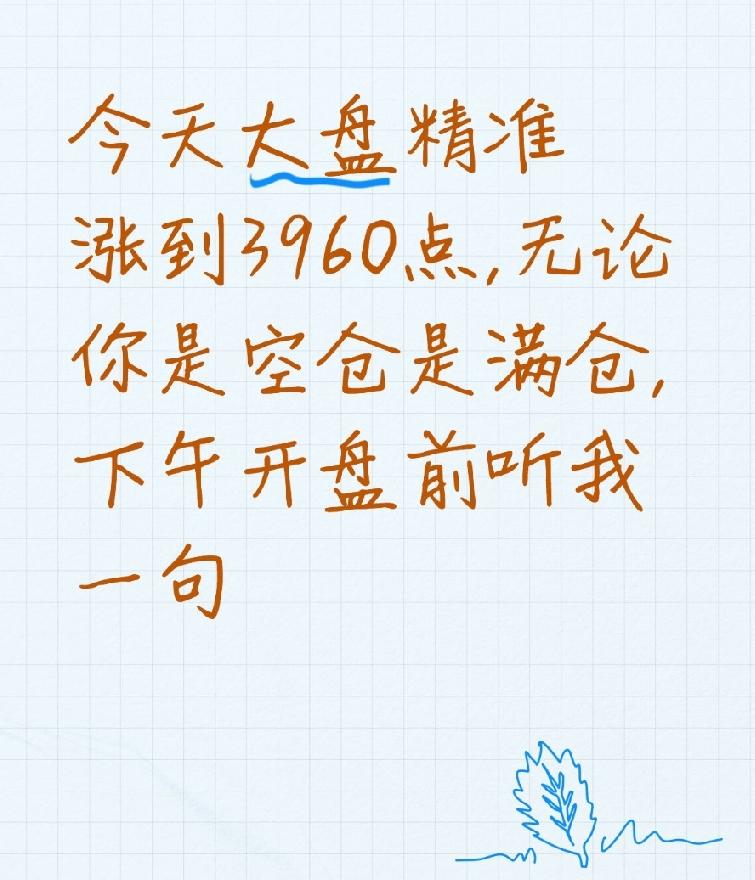 今天大盘精准
涨到3960点,无论
你是空仓是满仓,
下午开盘前听我
一句